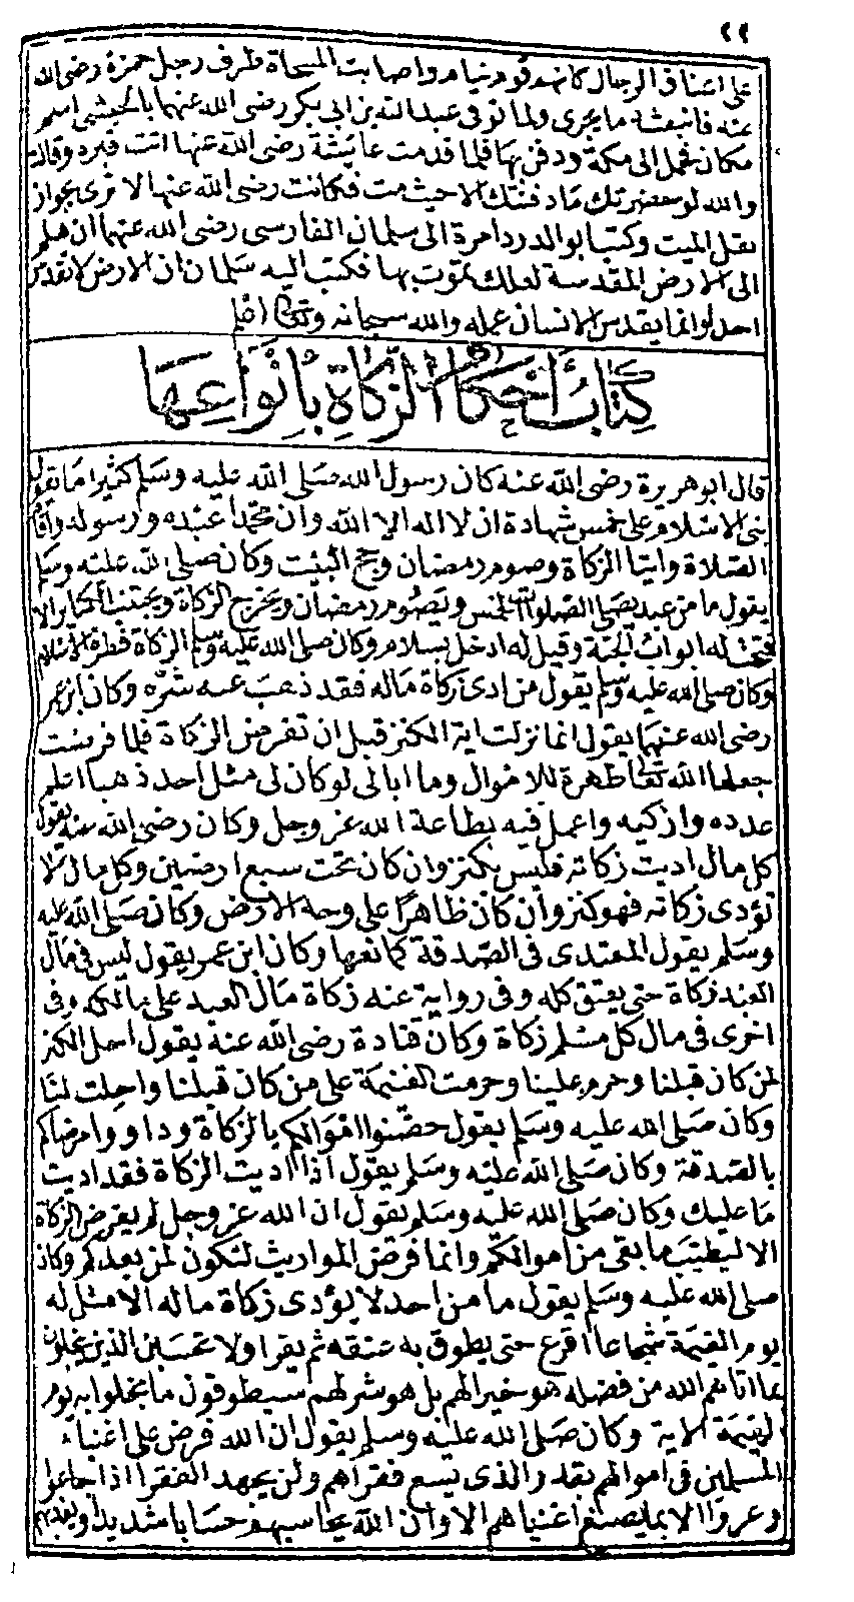 ٢٢
على اعناق الرجال كانهم قوم نيام واصابت المسحاة طرف رجل حمزة رضى الله
عنه فانبعثت دما يجرى ولما توفى عبد الله بن ابى بكر رضى الله عنهما بالحبشى اسم
مكان فحمل الى مكة ودفن بها فلما قدمت عائشة رضى الله عنها اتت قبره وقالت
والله لو حضرتك ما دفنتك الا حيث مت فكانت رضى الله عنها لا ترى بجواز
نقل الميت وكتب ابو الدرداء مرة الى سلمان الفارسى رضى الله عنهما ان هلم
الى الارض المقدسة لعلك تموت بها فكتب اليه سلمان ان الارض لا تقدس
احدا وانما يقدس الانسان عمله والله سبحانه وتعالى اعلم
كِتَابُ أحْكَامِ الزَّكَاةِ بِأَنْوَاعِهَا
قال ابو هريرة رضى الله عنه كان رسول الله صلى الله عليه وسلم كثيرا ما يقول
بنى الاسلام على خمس شهادة ان لا اله الا الله وان محمدا عبده ورسوله واقام
الصلاة وايتا الزكاة وصوم رمضان وحج البيت وكان صلى الله عليه وسلم
يقول ما من عبد يصلى الصلوات الخمس ويصوم رمضان ويخرج الزكاة ويجتنب الكبائر الا
فتحت له ابواب الجنة وقيل له ادخل بسلام وكان صلى الله عليه وسلم الزكاة قنطرة الاسلام
وكان صلى الله عليه وسلم يقول من ادى زكاة ماله فقد ذهب عنه شره وكان ابن عمر
رضى الله عنهما يقول انما نزلت اية الكنز قبل ان تفرض الزكاة فلما فرضت
جعلها الله تعالى طهرة للاموال وما ابالى لو كان لى مثل احد ذهبا اعلم
عدده وازكيه واعمل فيه بطاعة الله عز وجل وكان رضى الله عنه يقول
كل مال اديت زكاته فليس بكنز وان كان تحت سبع ارضين وكل مال لا
تؤدى زكاته فهو كنز وان كان ظاهرا على وجه الارض وكان صلى الله عليه
وسلم يقول المعتدى فى الصدقة كمانعها وكان ابن عمر يقول ليس فى مال
العبد زكاة حتى يعتق كله وفى رواية عنه زكاة مال العبد على مالكه وفى
اخرى فى مال كل مسلم زكاة وكان قتادة رضى الله عنه يقول احل الكنز
لمن كان قبلنا وحرم علينا وحرمت الغنيمة على من كان قبلنا واحلت لنا
وكان صلى الله عليه وسلم يقول حصنوا اموالكم بالزكاة وداووا مرضاكم
بالصدقة وكان صلى الله عليه وسلم يقول اذا اديت الزكاة فقد اديت
ما عليك وكان صلى الله عليه وسلم يقول ان الله عز وجل لم يفرض الزكاة
الا ليطيب ما بقى من اموالكم وانما فرض المواريث لتكون لمن بعدكم وكان
صلى الله عليه وسلم يقول ما من احد لا يؤدى زكاة ماله الا مثل له
يوم القيمة شجاعا اقرع حتى يطوق به عنقه ثم يقرا ولا تحسبن الذين يبخلون
بما اتاهم الله من فضله هو خيرا لهم بل هو شر لهم سيطوقون ما بخلوا به يوم
القيمة الاية وكان صلى الله عليه وسلم يقول ان الله فرض على اغنياء
المسلمين فى اموالهم بقدر الذى يسع فقراهم ولن يجهد الفقرا اذا جاعوا
وعروا الا بما يصنع اغنياهم الا وان الله يحاسبهم حسابا شديدا ويعذبهم